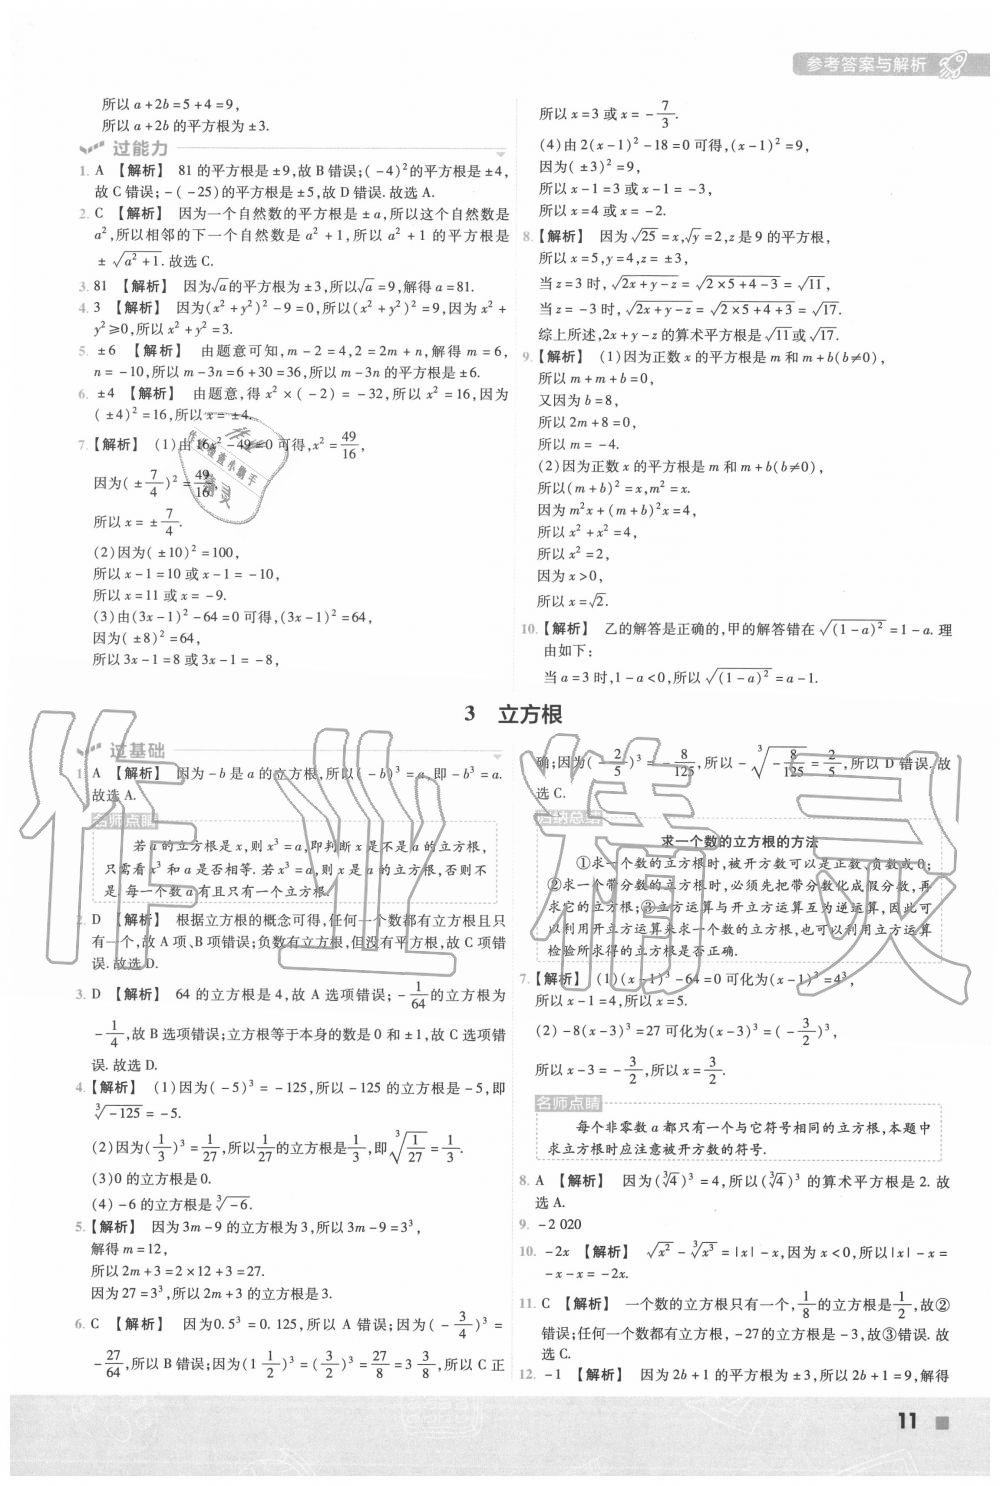 参考答案与解析
所以 a+2b=5+4=9,
所以 a+2b 的平方根为 ±3.
过能力
1. A 【解析】 81 的平方根是 ±9,故 B 错误;(-4)²的平方根是 ±4,
故 C 错误;-(-25)的平方根是 ±5,故 D 错误.故选 A.
2. C 【解析】 因为一个自然数的平方根是 ±a,所以这个自然数是
a²,所以相邻的下一个自然数是 a²+1,所以 a²+1 的平方根是
±√(a²+1).故选 C.
3. 81 【解析】 因为√a的平方根为 ±3,所以√a=9,解得 a=81.
4. 3 【解析】 因为(x²+y²)²-9=0,所以(x²+y²)²=9,因为 x²+
y²≥0,所以 x²+y²=3.
5. ±6 【解析】 由题意可知,m-2=4,2=2m+n,解得 m=6,
n=-10,所以 m-3n=6+30=36,所以 m-3n的平方根是 ±6.
6. ±4 【解析】 由题意,得 x²×(-2)=-32,所以 x²=16,因为
(±4)²=16,所以 x=±4.
7.【解析】 (1)由 16x²-49=0 可得,x²=49/16,
因为(±7/4)²=49/16,
所以 x=±7/4.
(2)因为(±10)²=100,
所以 x-1=10 或 x-1=-10,
所以 x=11 或 x=-9.
(3)由(3x-1)²-64=0 可得,(3x-1)²=64,
因为(±8)²=64,
所以 3x-1=8 或 3x-1=-8,
所以 x=3 或 x=-7/3.
(4)由 2(x-1)²-18=0 可得,(x-1)²=9,
因为(±3)²=9,
所以 x-1=3 或 x-1=-3,
所以 x=4 或 x=-2.
8.【解析】 因为√25=x,√y=2,z 是 9 的平方根,
所以 x=5,y=4,z=±3,
当 z=3 时,√(2x+y-z)=√(2×5+4-3)=√11,
当 z=-3 时,√(2x+y-z)=√(2×5+4+3)=√17.
综上所述,2x+y-z 的算术平方根是 √11或 √17.
9.【解析】 (1)因为正数 x 的平方根是 m 和 m+b(b≠0),
所以 m+m+b=0,
又因为 b=8,
所以 2m+8=0,
所以 m=-4.
(2)因为正数 x 的平方根是 m 和 m+b(b≠0),
所以(m+b)²=x,m²=x.
因为 m²x+(m+b)²x=4,
所以 x²+x²=4,
所以 x²=2,
因为 x>0,
所以 x=√2.
10.【解析】 乙的解答是正确的,甲的解答错在 √((1-a)²)=1-a. 理
由如下:
当 a=3 时,1-a<0,所以 √((1-a)²)=a-1.
3 立方根
过基础
1. A 【解析】 因为-b 是 a 的立方根,所以(-b)³=a,即-b³=a.
故选 A.
名师点睛
若 a 的立方根是 x,则 x³=a,即判断 x 是不是 a 的立方根,
只需看 x³ 和 a 是否相等.若 x³=a,则 x 是 a 的立方根,否则不
是.每一个数 a 有且只有一个立方根.
2. D 【解析】 根据立方根的概念可得,任何一个数都有立方根且只
有一个,故 A 项、B 项错误;负数有立方根,但没有平方根,故 C 项错
误.故选 D.
3. D 【解析】 64 的立方根是 4,故 A 选项错误;-1/64的立方根为
-1/4,故 B 选项错误;立方根等于本身的数是 0 和 ±1,故 C 选项错
误.故选 D.
4.【解析】 (1)因为(-5)³=-125,所以-125 的立方根是-5,即
∛-125=-5.
(2)因为(1/3)³=1/27,所以1/27的立方根是1/3,即∛(1/27)=1/3.
(3)0 的立方根是 0.
(4)-6 的立方根是∛-6.
5.【解析】 因为 3m-9 的立方根为 3,所以 3m-9=3³,
解得 m=12,
所以 2m+3=2×12+3=27.
因为 27=3³,所以 2m+3 的立方根是 3.
6. C 【解析】 因为0.5³=0.125,所以 A 错误;因为(-3/4)³=
-27/64,所以 B 错误;因为(1 1/2)³=(3/2)³=27/8=3 3/8,所以 C 正
确;因为(-2/5)³=-8/125,所以-∛(-8/125)=2/5,所以 D 错误.故
选 C.
归纳总结
求一个数的立方根的方法
①求一个数的立方根时,被开方数可以是正数、负数或 0;
②求一个带分数的立方根时,必须先把带分数化成假分数,再
求它的立方根;③立方运算与开立方运算互为逆运算,因此可
以利用开立方运算来求一个数的立方根,也可以利用立方运算
检验所求得的立方根是否正确.
7.【解析】 (1)(x-1)³-64=0 可化为(x-1)³=4³,
所以 x-1=4,所以 x=5.
(2)-8(x-3)³=27 可化为(x-3)³=(-3/2)³,
所以 x-3=-3/2,所以 x=3/2.
名师点睛
每个非零数 a 都只有一个与它符号相同的立方根,本题中
求立方根时应注意被开方数的符号.
8. A 【解析】 因为(∛4)³=4,所以(∛4)³ 的算术平方根是 2. 故
选 A.
9. -2 020
10. -2x 【解析】 √x²-∛x³=|x|-x,因为 x<0,所以|x|-x=
-x-x=-2x.
11. C 【解析】 一个数的立方根只有一个,1/8的立方根是1/2,故②
错误;任何一个数都有立方根,-27的立方根是-3,故③错误.故
选 C.
12. -1 【解析】 因为 2b+1 的平方根为 ±3,所以 2b+1=9,解得
11
作业精灵